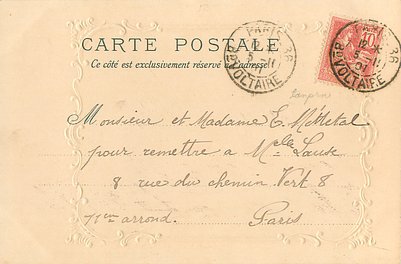 CARTE POSTALE
Ce côté est exclusivement réservé à l'adresse
PARIS 36
Bd VOLTAIRE
PARIS 36
Bd VOLTAIRE
10
Monsieur et Madame E. Méthetal
pour remettre a Melle Lause
8 rue du chemin Vert 8
11eme arrond. Paris